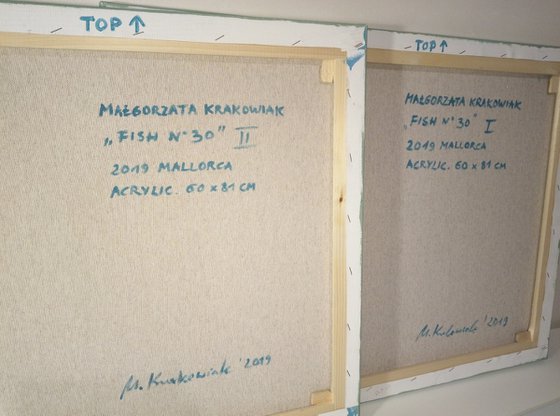 TOP ↑
MAŁGORZATA KRAKOWIAK
„FISH N° 30" II
2019 MALLORCA
ACRYLIC. 60 x 81 CM
M. Krakowiak '2019
TOP ↑
MAŁGORZATA KRAKOWIAK
„FISH N° 30" I
2019 MALLORCA
ACRYLIC. 60 x 81 CM
M. Krakowiak '2019